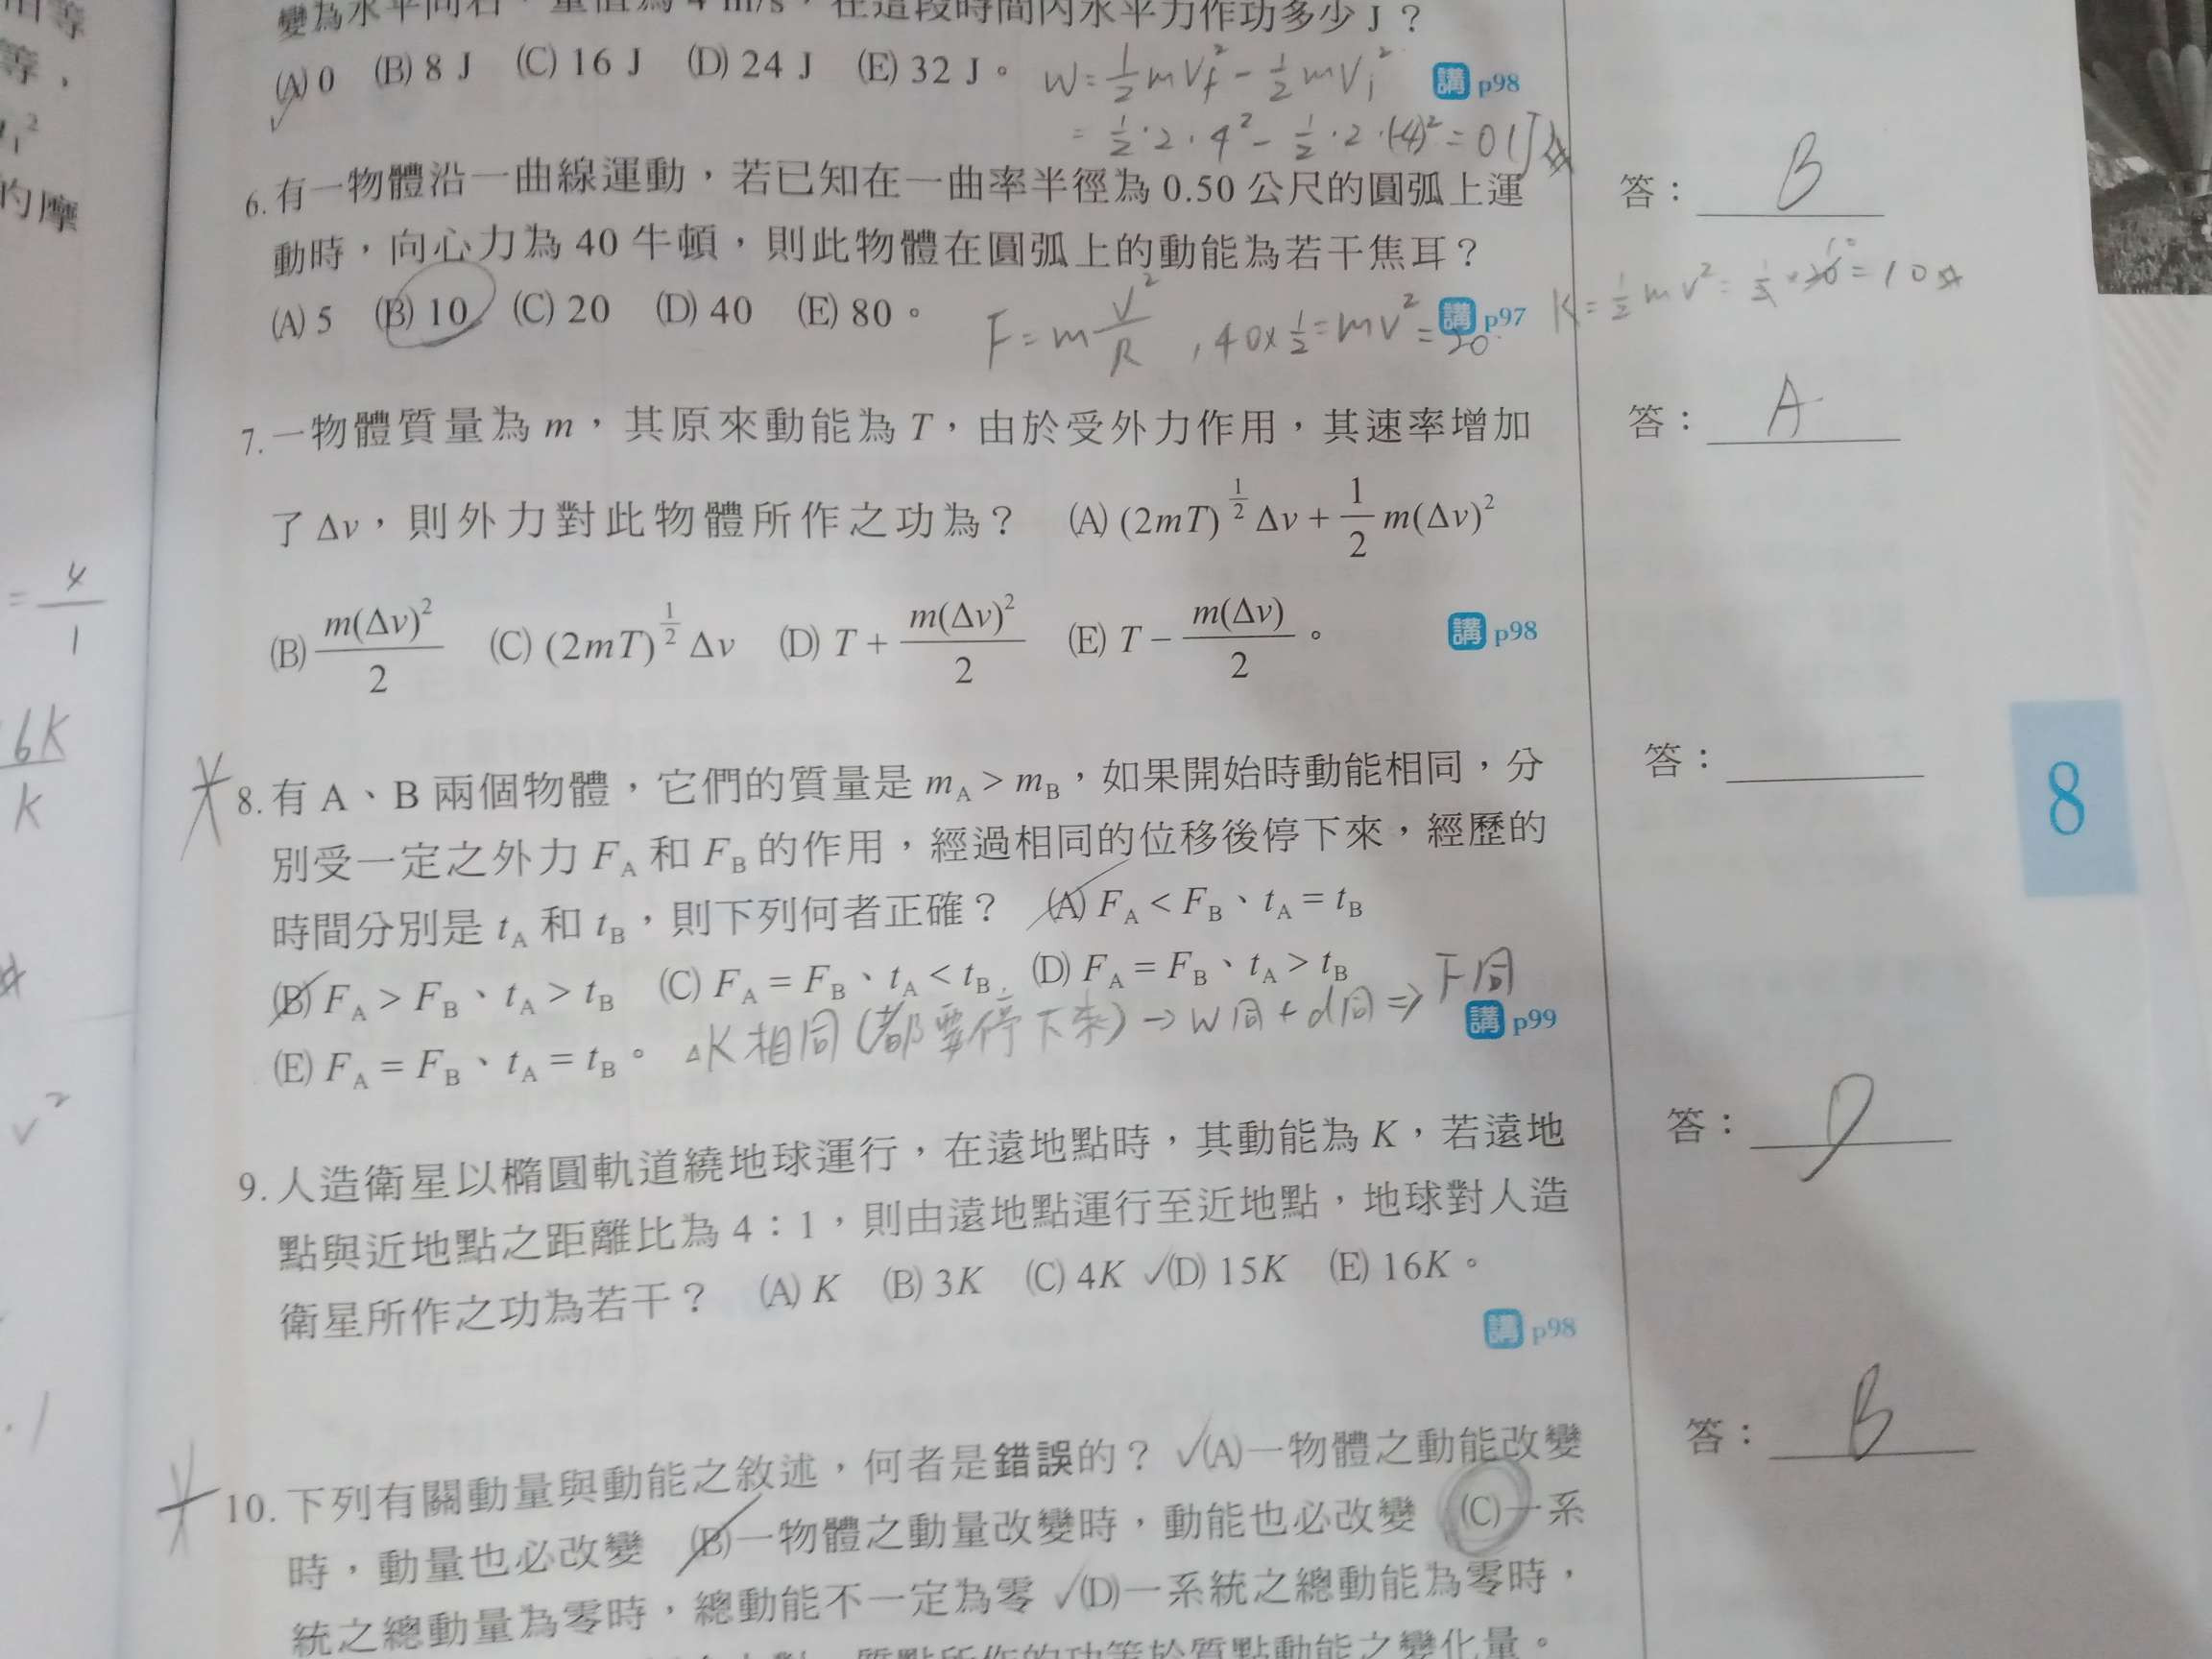 變為水平向右,量值為4 m/s,在這段時間內水平力作功多少 J?
(A) 0 (B) 8 J (C) 16 J (D) 24 J (E) 32 J。
W = ½mVf² − ½mVi²
講 p98
= ½·2·4² − ½·2·(-4)² = 0 (J)#
6. 有一物體沿一曲線運動,若已知在一曲率半徑為 0.50 公尺的圓弧上運
動時,向心力為 40 牛頓,則此物體在圓弧上的動能為若干焦耳?
(A) 5 (B) 10 (C) 20 (D) 40 (E) 80。
講 p97
F = m V²/R , 40×½ = mv² = 20
答: B
K = ½mv² = ½×20 = 10#
10
7. 一物體質量為 m,其原來動能為 T,由於受外力作用,其速率增加
了 Δv,則外力對此物體所作之功為? (A) (2mT)^(1/2) Δv + 1/2 m(Δv)²
(B) m(Δv)²/2 (C) (2mT)^(1/2) Δv (D) T + m(Δv)²/2 (E) T − m(Δv)/2。
講 p98
答: A
8. 有 A、B 兩個物體,它們的質量是 mA > mB,如果開始時動能相同,分
別受一定之外力 FA 和 FB 的作用,經過相同的位移後停下來,經歷的
時間分別是 tA 和 tB,則下列何者正確? (A) FA < FB、tA = tB
(B) FA > FB、tA > tB (C) FA = FB、tA < tB (D) FA = FB、tA > tB
(E) FA = FB、tA = tB。
講 p99
ΔK相同(都要停下來)→ W同 + d同 ⇒ F同
答:
8
9. 人造衛星以橢圓軌道繞地球運行,在遠地點時,其動能為 K,若遠地
點與近地點之距離比為 4:1,則由遠地點運行至近地點,地球對人造
衛星所作之功為若干? (A) K (B) 3K (C) 4K ✓(D) 15K (E) 16K。
講 p98
答: D
10. 下列有關動量與動能之敘述,何者是錯誤的? ✓(A)一物體之動能改變
時,動量也必改變 (B)一物體之動量改變時,動能也必改變 (C)一系
統之總動量為零時,總動能不一定為零 ✓(D)一系統之總動能為零時,
質點所作的功等於質點動能之變化量。
答: B
等
等,
1²
的摩
= 4/1
6K
K
#
v²
.1